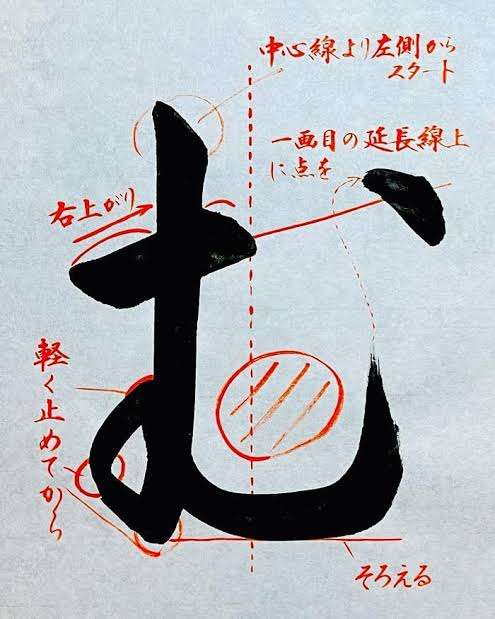 中心線より左側から
スタート
一画目の延長線上
に点を
右上がり
む
軽く止めてから
そろえる